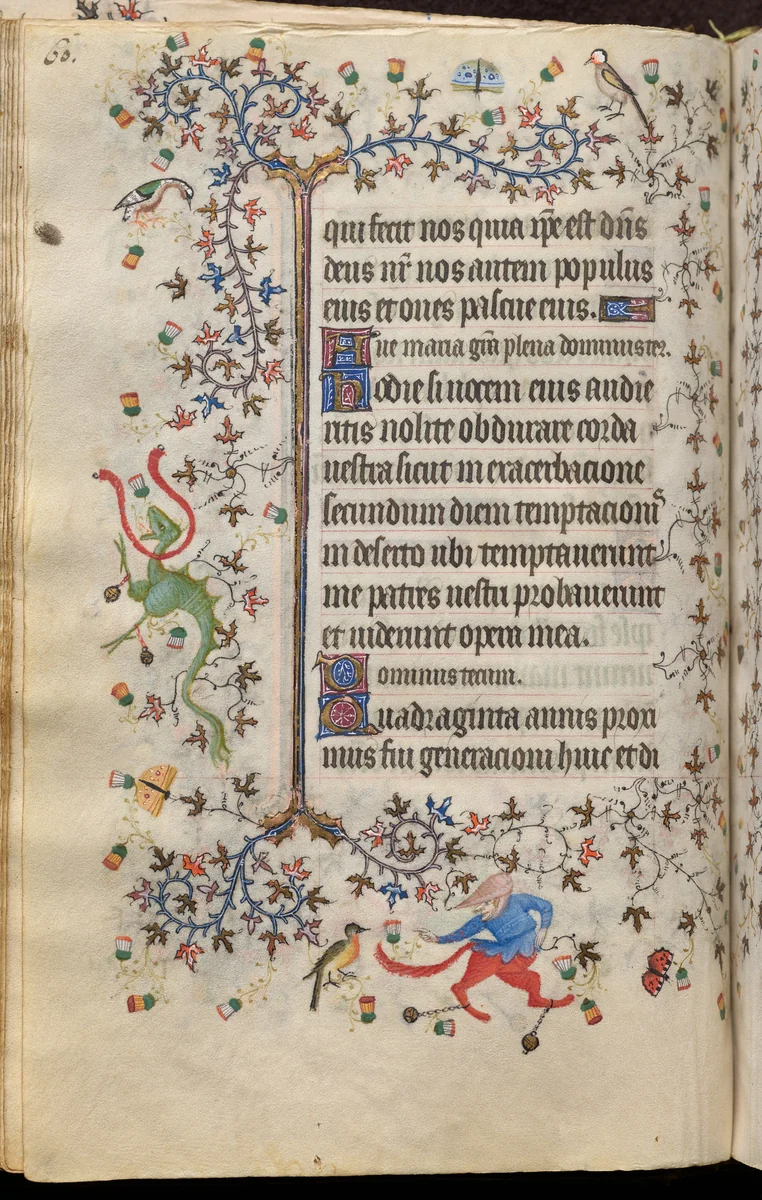 60.
qui fecit nos quia ip̄e est dn̄s
deus nr̄ nos autem populus
eius et oues pascue eius.
Aue maria gr̄a plena dominus tec.
hodie si uocem eius audie
ritis nolite obdurare corda
uestra sicut in exacerbacione
secundum diem temptacionis
in deserto ubi temptauerunt
me patres uestri probauerunt
et uiderunt opera mea.
Dominus tecum.
Quadraginta annis proxi
mus fui generacioni huic et di